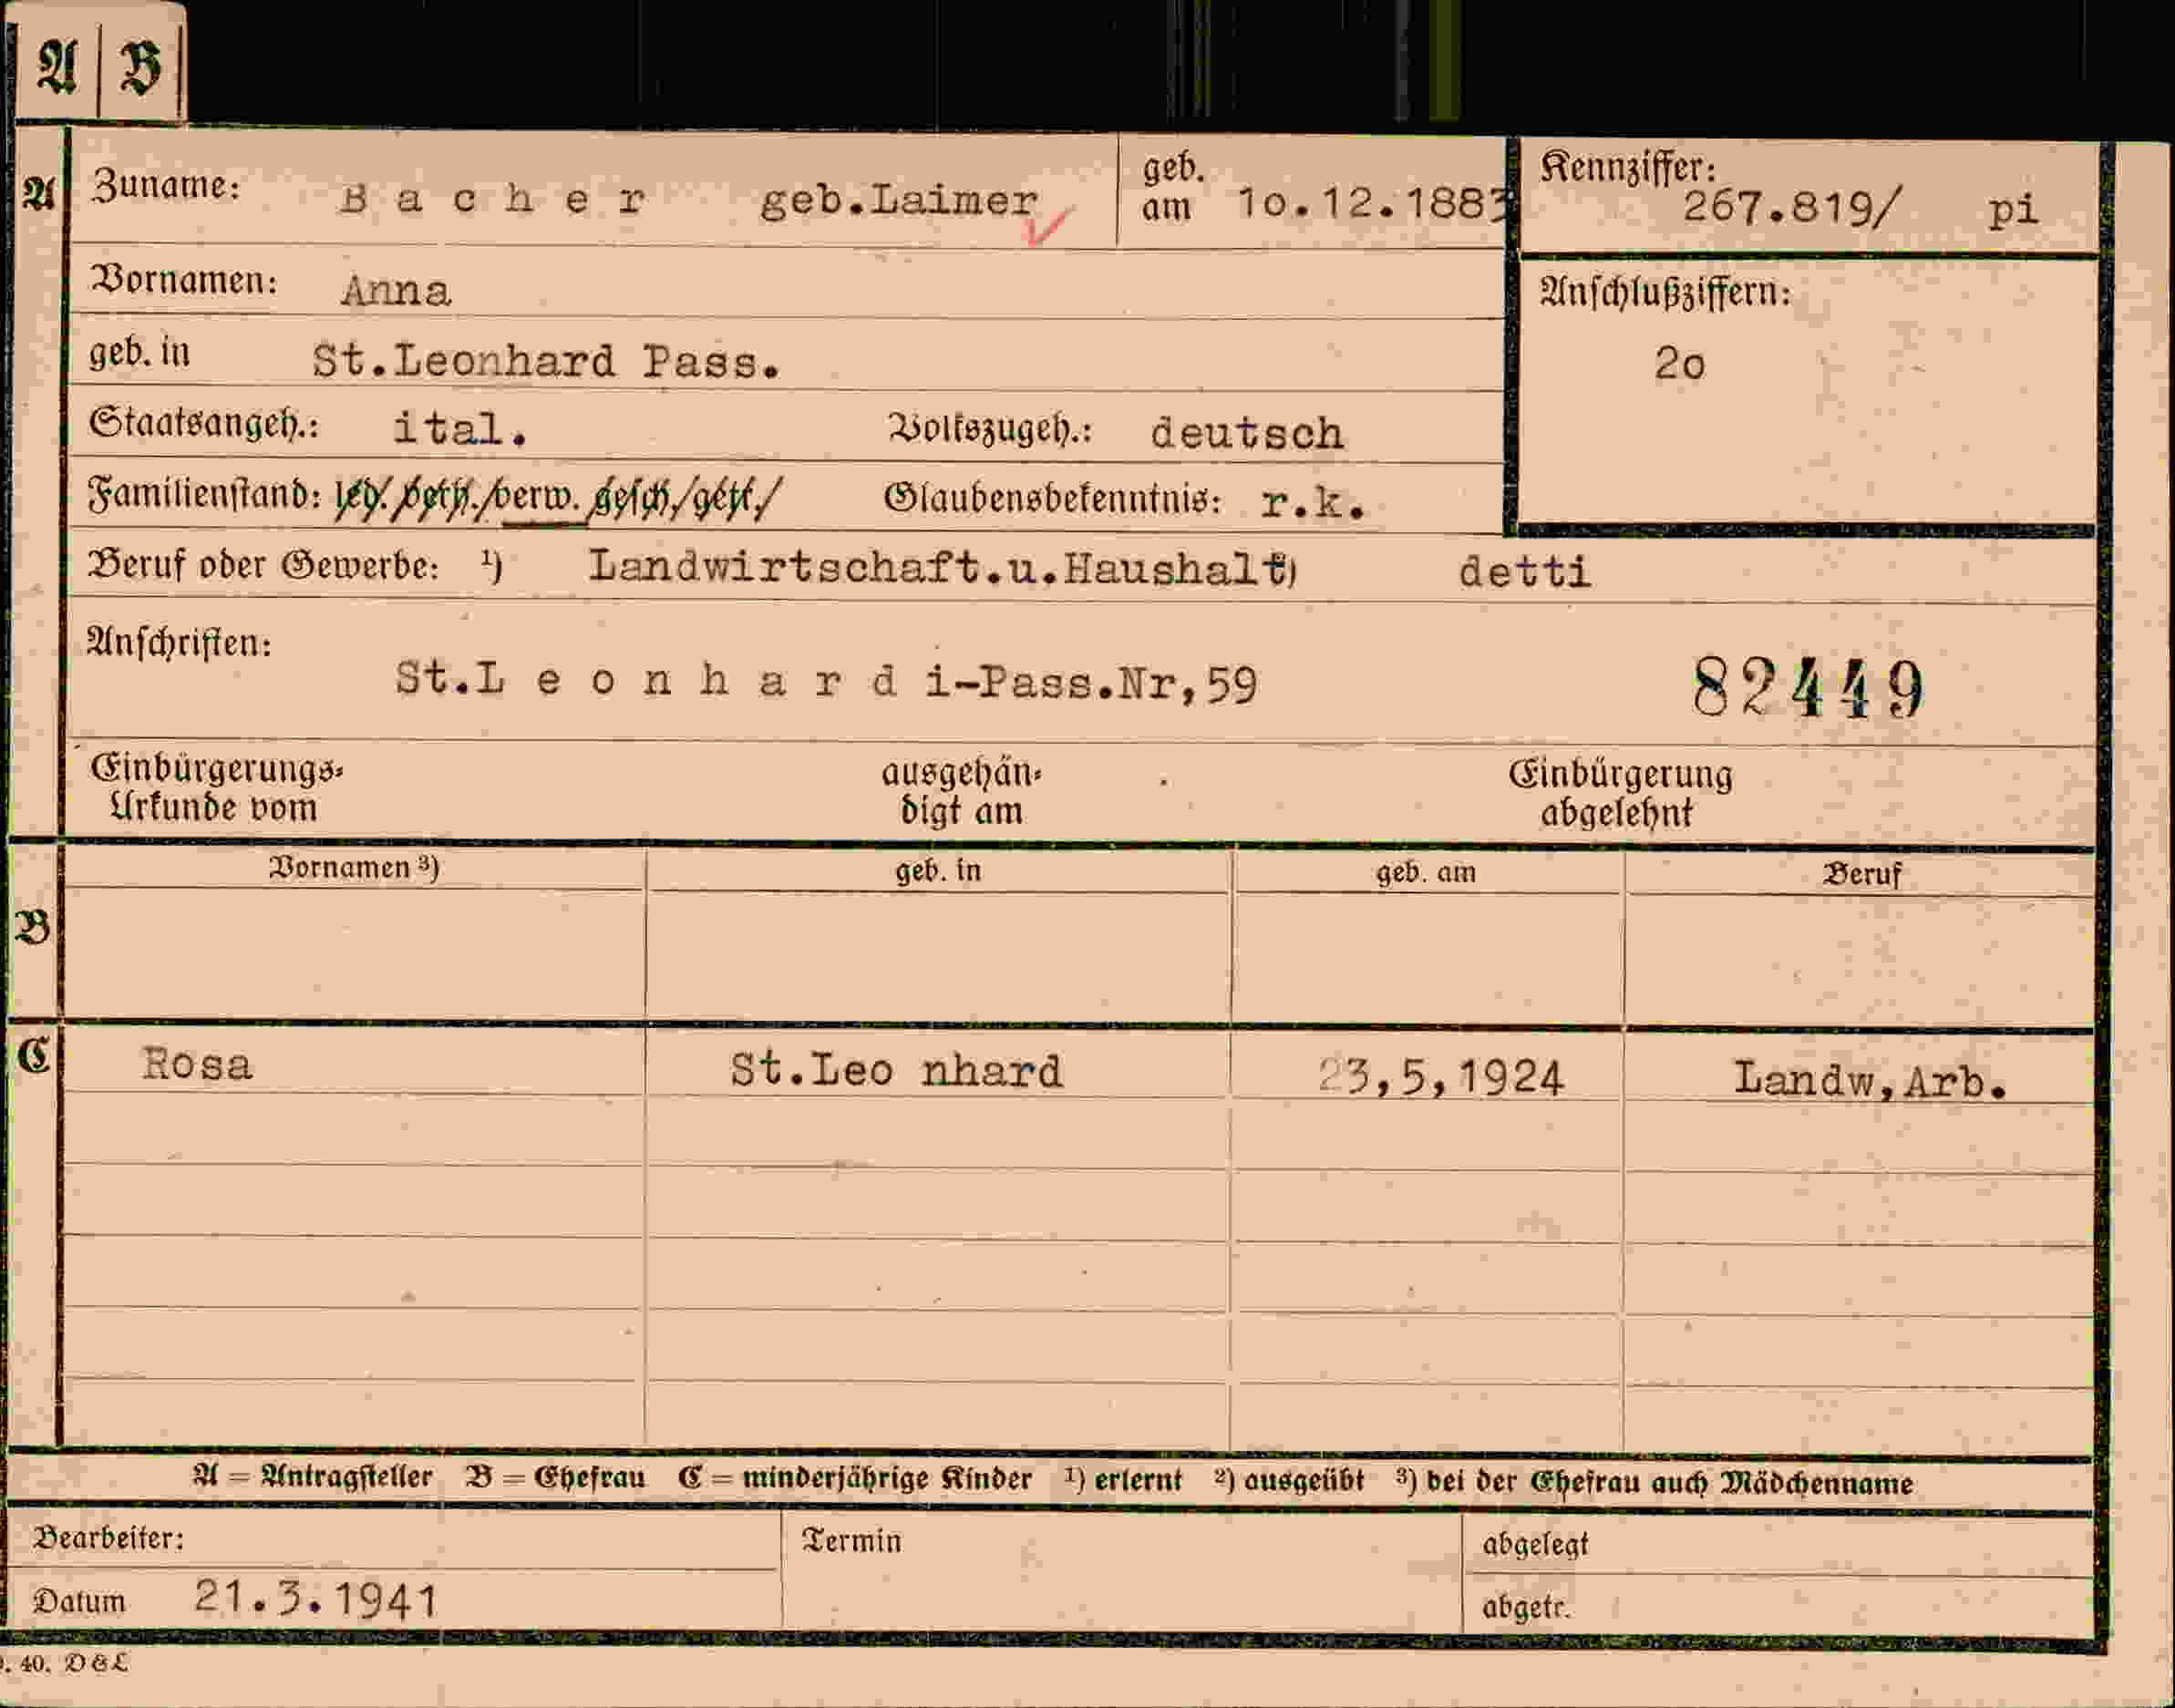 A B
A Zuname: Bacher geb.Laimer geb. am 10.12.1883 Kennziffer: 267.819/ pi
Vornamen: Anna Anschlußziffern:
geb. in St.Leonhard Pass. 2o
Staatsangeh.: ital. Volkszugeh.: deutsch
Familienstand: led./verh./verw./gesch./getr./ Glaubensbekenntnis: r.k.
Beruf oder Gewerbe: ¹) Landwirtschaft.u.Haushalt ²) detti
Anschriften:
St.Leonhard i-Pass.Nr,59 82449
Einbürgerungs- ausgehän- Einbürgerung
Urkunde vom digt am abgelehnt
Vornamen ³) geb. in geb. am Beruf
B
C Rosa St.Leo nhard 23,5,1924 Landw,Arb.
A = Antragsteller B = Ehefrau C = minderjährige Kinder ¹) erlernt ²) ausgeübt ³) bei der Ehefrau auch Mädchenname
Bearbeiter: Termin abgelegt
Datum 21.3.1941 abgetr.
. 40. D & L